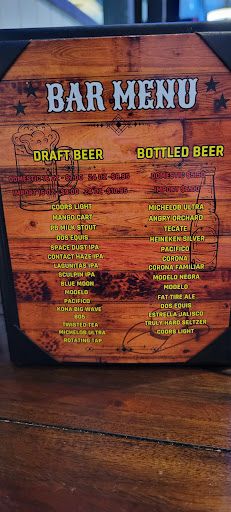 BAR MENU
DRAFT BEER
COORS LIGHT
MANGO CART
PB MILK STOUT
DOS EQUIS
SPACE DUST IPA
CONTACT HAZE IPA
LAGUNITAS IPA
SCULPIN IPA
BLUE MOON
MODELO
PACIFICO
KONA BIG WAVE
805
TWISTED TEA
MICHELOB ULTRA
ROTATING TAP
BOTTLED BEER
MICHELOB ULTRA
ANGRY ORCHARD
TECATE
HEINEKEN SILVER
PACIFICO
CORONA
CORONA FAMILIAR
MODELO NEGRA
MODELO
FAT TIRE ALE
DOS EQUIS
ESTRELLA JALISCO
TRULY HARD SELTZER
COORS LIGHT